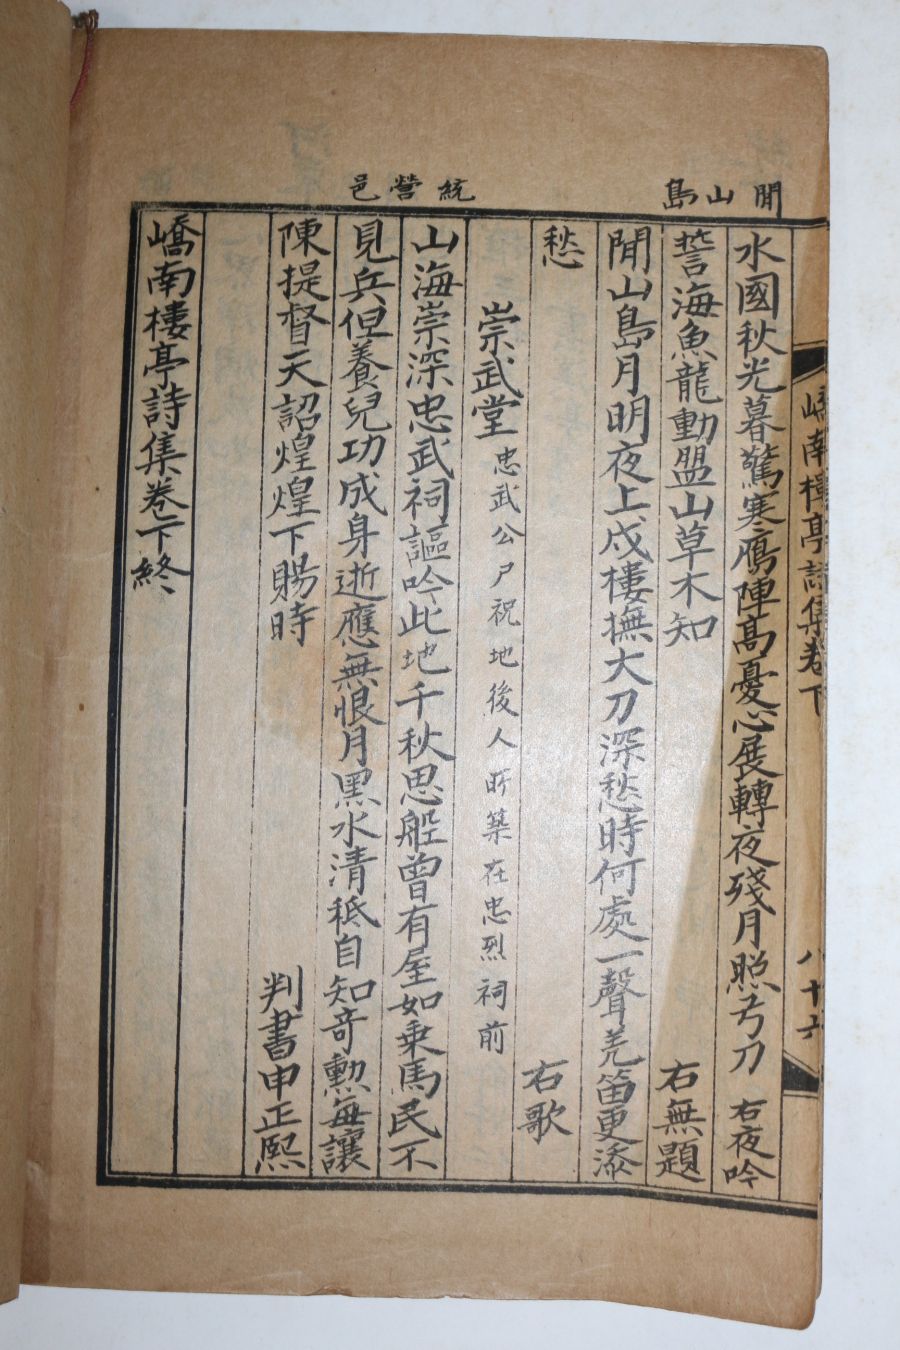 閒山島
統營邑
水國秋光暮驚寒鴈陣高憂心展轉夜殘月照弓刀 右夜吟
誓海魚龍動盟山草木知 右無題
閒山島月明夜上戍樓撫大刀深愁時何處一聲羌笛更添
愁 右歌
崇武堂 忠武公尸祝地後人所築在忠烈祠前
山海崇深忠武祠謳吟此地千秋思船曾有屋如乗馬民不
見兵但養兒功成身逝應無恨月黑水清秪自知竒勲每讓
陳提督天詔煌煌下賜時 判書申正熙
嶠南樓亭詩集卷下終
嶠南樓亭詩集卷下 八十六